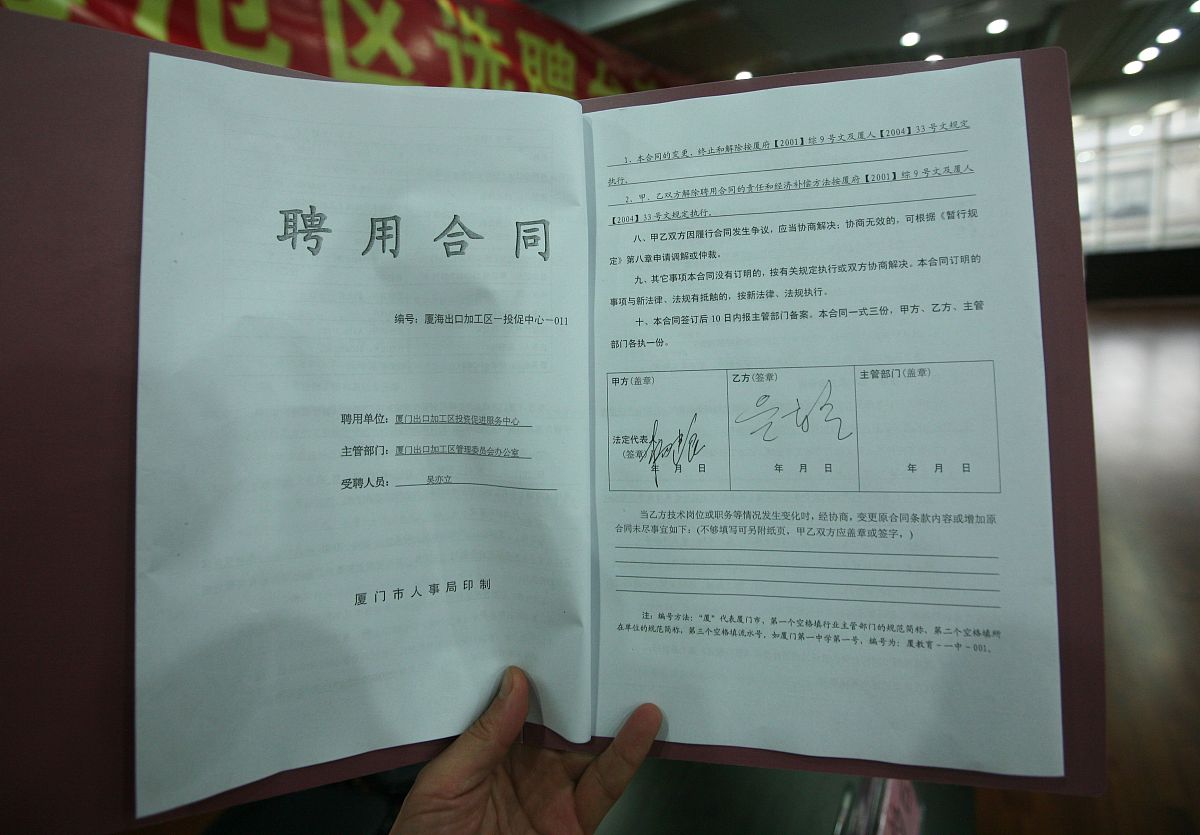 区选聘
聘用合同
编号：厦海出口加工区—投促中心—011
聘用单位：厦门出口加工区投资促进服务中心
主管部门：厦门出口加工区管理委员会办公室
受聘人员：吴亦立
厦门市人事局印制
1、本合同的变更、终止和解除按厦府【2001】综9号文及厦人【2004】33号文规定
执行。
2、甲、乙双方解除聘用合同的责任和经济补偿方法按厦府【2001】综9号文及厦人
【2004】33号文规定执行。
八、甲乙双方因履行合同发生争议，应当协商解决；协商无效的，可根据《暂行规
定》第八章申请调解或仲裁。
九、其它事项本合同没有订明的，按有关规定执行或双方协商解决。本合同订明的
事项与新法律、法规有抵触的，按新法律、法规执行。
十、本合同签订后10日内报主管部门备案。本合同一式三份，甲方、乙方、主管
部门各执一份。
甲方（盖章） 乙方（签章） 主管部门（盖章）
法定代表
（签章
年 月 日 年 月 日 年 月 日
当乙方技术岗位或职务等情况发生变化时，经协商，变更原合同条款内容或增加原
合同未尽事宜如下：（不够填写可另附纸页，甲乙双方应盖章或签字，）
注：编号方法：“厦”代表厦门市，第一个空格填行业主管部门的规范简称，第二个空格填所
在单位的规范简称，第三个空格填流水号，如厦门第一中学第一号，编号为：厦教育－一中－001。